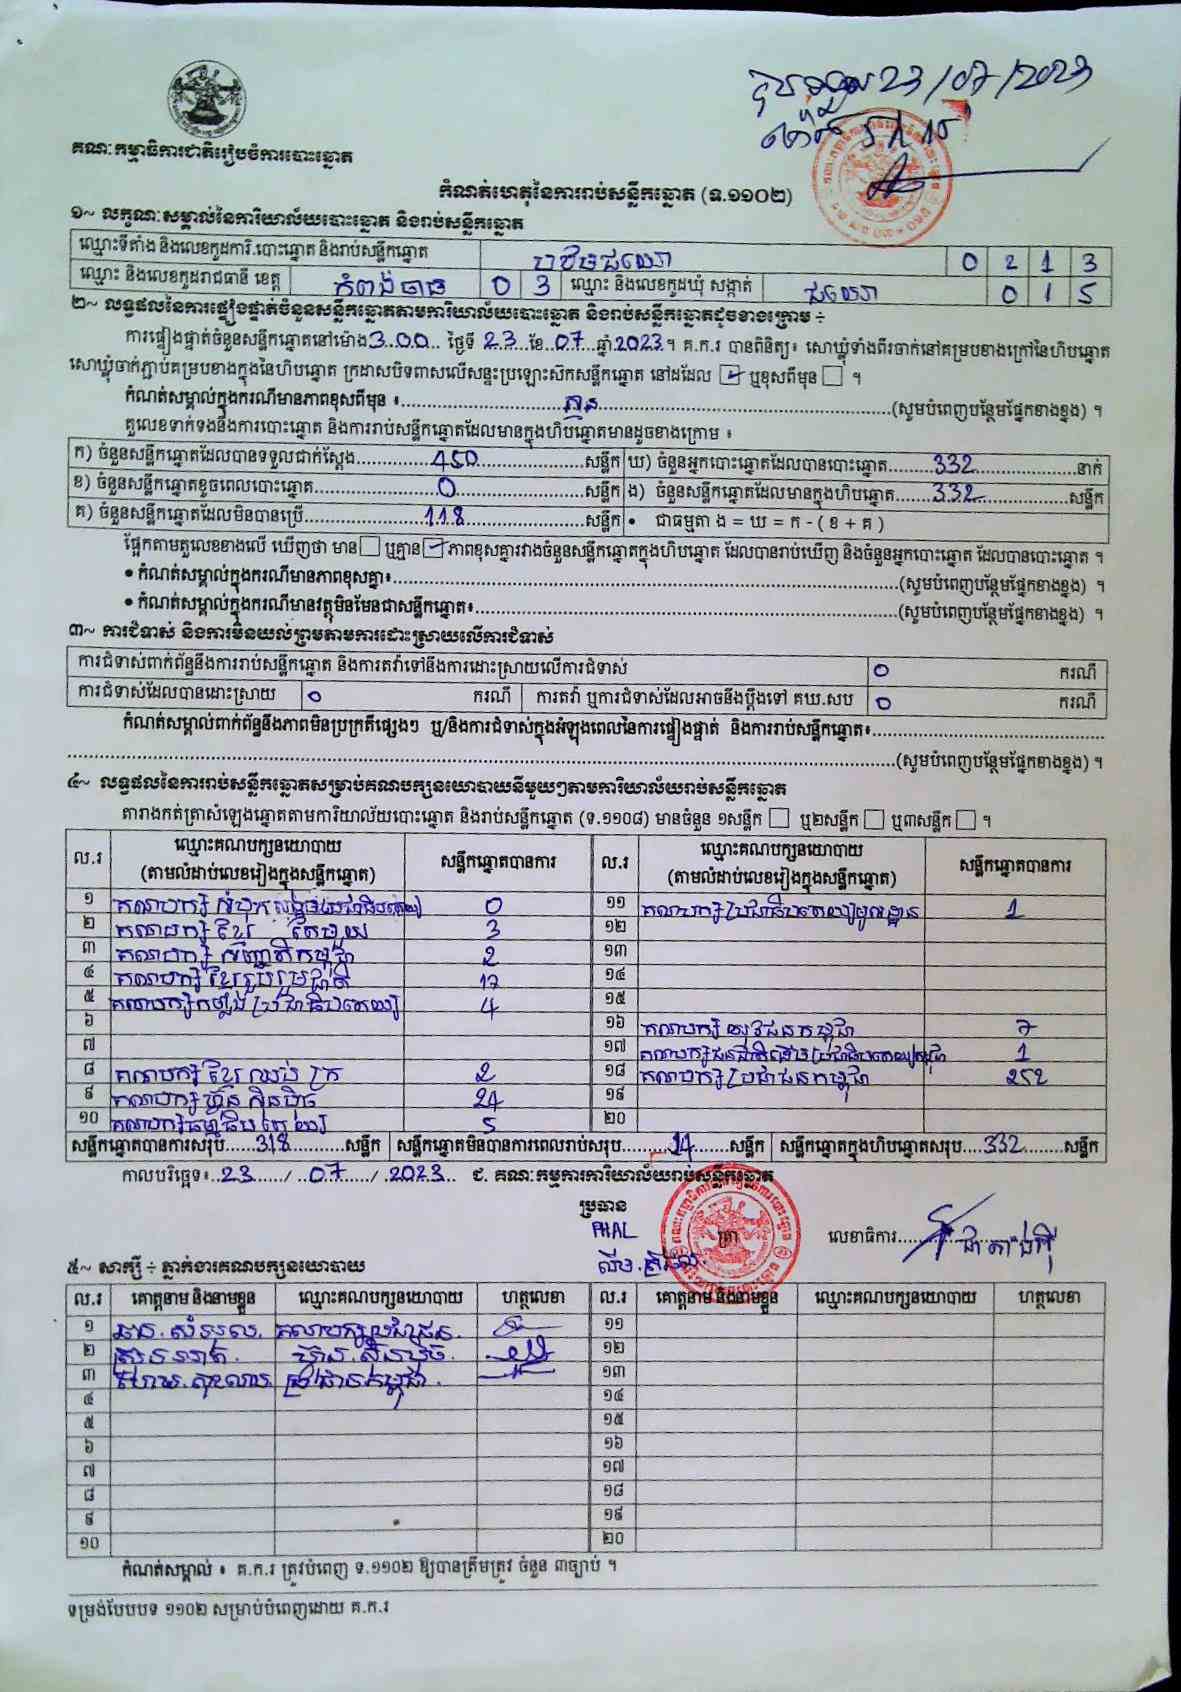 23/07/2023
គណៈកម្មាធិការជាតិរៀបចំការបោះឆ្នោត
កំណត់ហេតុនៃការរាប់សន្លឹកឆ្នោត (ទ.១១០២)
១~ លក្ខណៈសម្គាល់នៃការិយាល័យបោះឆ្នោត និងរាប់សន្លឹកឆ្នោត
ឈ្មោះទីតាំង និងលេខកូដការិ.បោះឆ្នោត និងរាប់សន្លឹកឆ្នោត 0 2 1 3
ឈ្មោះ និងលេខកូដរាជធានី ខេត្ត កំពង់ចាម 0 3 ឈ្មោះ និងលេខកូដឃុំ សង្កាត់ 0 1 5
២~ លទ្ធផលនៃការផ្ទៀងផ្ទាត់ចំនួនសន្លឹកឆ្នោតតាមការិយាល័យបោះឆ្នោត និងរាប់សន្លឹកឆ្នោតដូចខាងក្រោម ÷
ការផ្ទៀងផ្ទាត់ចំនួនសន្លឹកឆ្នោតនៅម៉ោង 3.00 ថ្ងៃទី 23 ខែ 07 ឆ្នាំ 2023 ។ គ.ក.រ បានពិនិត្យ៖ សោឃ្លុំទាំងពីរចាក់នៅគម្របខាងក្រៅនៃហិបឆ្នោត
សោឃ្លុំចាក់ភ្ជាប់គម្របខាងក្នុងនៃហិបឆ្នោត ក្រដាសបិទពាសលើសន្ទះប្រឡោះស៊កសន្លឹកឆ្នោត នៅដដែល ☑ ឬខុសពីមុន ☐ ។
កំណត់សម្គាល់ក្នុងករណីមានភាពខុសពីមុន ៖ គ្មាន (សូមបំពេញបន្ថែមផ្នែកខាងខ្នង) ។
តួលេខទាក់ទងនឹងការបោះឆ្នោត និងការរាប់សន្លឹកឆ្នោតដែលមានក្នុងហិបឆ្នោតមានដូចខាងក្រោម ៖
ក) ចំនួនសន្លឹកឆ្នោតដែលបានទទួលជាក់ស្តែង 450 សន្លឹក ឃ) ចំនួនអ្នកបោះឆ្នោតដែលបានបោះឆ្នោត 332 នាក់
ខ) ចំនួនសន្លឹកឆ្នោតខូចពេលបោះឆ្នោត 0 សន្លឹក ង) ចំនួនសន្លឹកឆ្នោតដែលមានក្នុងហិបឆ្នោត 332 សន្លឹក
គ) ចំនួនសន្លឹកឆ្នោតដែលមិនបានប្រើ 118 សន្លឹក • ជាធម្មតា ង = ឃ = ក - ( ខ + គ )
ផ្អែកតាមតួលេខខាងលើ ឃើញថា មាន ☐ ឬគ្មាន ☑ ភាពខុសគ្នារវាងចំនួនសន្លឹកឆ្នោតក្នុងហិបឆ្នោត ដែលបានរាប់ឃើញ និងចំនួនអ្នកបោះឆ្នោត ដែលបានបោះឆ្នោត ។
• កំណត់សម្គាល់ក្នុងករណីមានភាពខុសគ្នា៖ (សូមបំពេញបន្ថែមផ្នែកខាងខ្នង) ។
• កំណត់សម្គាល់ក្នុងករណីមានវត្ថុមិនមែនជាសន្លឹកឆ្នោត៖ (សូមបំពេញបន្ថែមផ្នែកខាងខ្នង) ។
៣~ ការជំទាស់ និងការមិនយល់ព្រមតាមការដោះស្រាយលើការជំទាស់
ការជំទាស់ពាក់ព័ន្ធនឹងការរាប់សន្លឹកឆ្នោត និងការតវ៉ាទៅនឹងការដោះស្រាយលើការជំទាស់ 0 ករណី
ការជំទាស់ដែលបានដោះស្រាយ 0 ករណី ការតវ៉ា ឬការជំទាស់ដែលអាចនឹងប្តឹងទៅ គឃ.សប 0 ករណី
កំណត់សម្គាល់ពាក់ព័ន្ធនឹងភាពមិនប្រក្រតីផ្សេងៗ ឬ/និងការជំទាស់ក្នុងអំឡុងពេលនៃការផ្ទៀងផ្ទាត់ និងការរាប់សន្លឹកឆ្នោត៖
(សូមបំពេញបន្ថែមផ្នែកខាងខ្នង) ។
៤~ លទ្ធផលនៃការរាប់សន្លឹកឆ្នោតសម្រាប់គណបក្សនយោបាយនីមួយៗតាមការិយាល័យរាប់សន្លឹកឆ្នោត
តារាងកត់ត្រាសំឡេងឆ្នោតតាមការិយាល័យបោះឆ្នោត និងរាប់សន្លឹកឆ្នោត (ទ.១១០៨) មានចំនួន ១សន្លឹក ☐ ឬ២សន្លឹក ☐ ឬ៣សន្លឹក ☐ ។
ល.រ ឈ្មោះគណបក្សនយោបាយ (តាមលំដាប់លេខរៀងក្នុងសន្លឹកឆ្នោត) សន្លឹកឆ្នោតបានការ ល.រ ឈ្មោះគណបក្សនយោបាយ (តាមលំដាប់លេខរៀងក្នុងសន្លឹកឆ្នោត) សន្លឹកឆ្នោតបានការ
១ គណបក្ស សំបុកឃ្មុំសង្គមប្រជាធិបតេយ្យ 0 ១១ គណបក្សប្រជាធិបតេយ្យមូលដ្ឋាន 1
២ គណបក្ស ខ្មែរ តែមួយ 3 ១២
៣ គណបក្ស សញ្ជាតិកម្ពុជា 2 ១៣
៤ គណបក្ស ខ្មែររួបរួមជាតិ 17 ១៤
៥ គណបក្សកម្លាំងប្រជាធិបតេយ្យ 4 ១៥
៦ ១៦ គណបក្ស យុវជនកម្ពុជា 7
៧ ១៧ គណបក្សជនជាតិដើមប្រជាធិបតេយ្យកម្ពុជា 1
៨ គណបក្ស ខ្មែរ ឈប់ ក្រ 2 ១៨ គណបក្សប្រជាជនកម្ពុជា 252
៩ គណបក្ស ហ៊្វុនស៊ិនប៉ិច 24 ១៩
១០ គណបក្សធម្មាធិបតេយ្យ 5 ២០
សន្លឹកឆ្នោតបានការសរុប 318 សន្លឹក សន្លឹកឆ្នោតមិនបានការពេលរាប់សរុប 14 សន្លឹក សន្លឹកឆ្នោតក្នុងហិបឆ្នោតសរុប 332 សន្លឹក
កាលបរិច្ឆេទ៖ 23 / 07 / 2023 ជ. គណៈកម្មការការិយាល័យរាប់សន្លឹកឆ្នោត
ប្រធាន
PHAL ត្រា លេខាធិការ
៥~ សាក្សី ÷ ភ្នាក់ងារគណបក្សនយោបាយ
ល.រ គោត្តនាម និងនាមខ្លួន ឈ្មោះគណបក្សនយោបាយ ហត្ថលេខា ល.រ គោត្តនាម និងនាមខ្លួន ឈ្មោះគណបក្សនយោបាយ ហត្ថលេខា
១ ១១
២ ហ៊្វុនស៊ិនប៉ិច ១២
៣ ១៣
៤ ១៤
៥ ១៥
៦ ១៦
៧ ១៧
៨ ១៨
៩ ១៩
១០ ២០
កំណត់សម្គាល់ ៖ គ.ក.រ ត្រូវបំពេញ ទ.១១០២ ឱ្យបានត្រឹមត្រូវ ចំនួន ៣ច្បាប់ ។
ទម្រង់បែបបទ ១១០២ សម្រាប់បំពេញដោយ គ.ក.រ